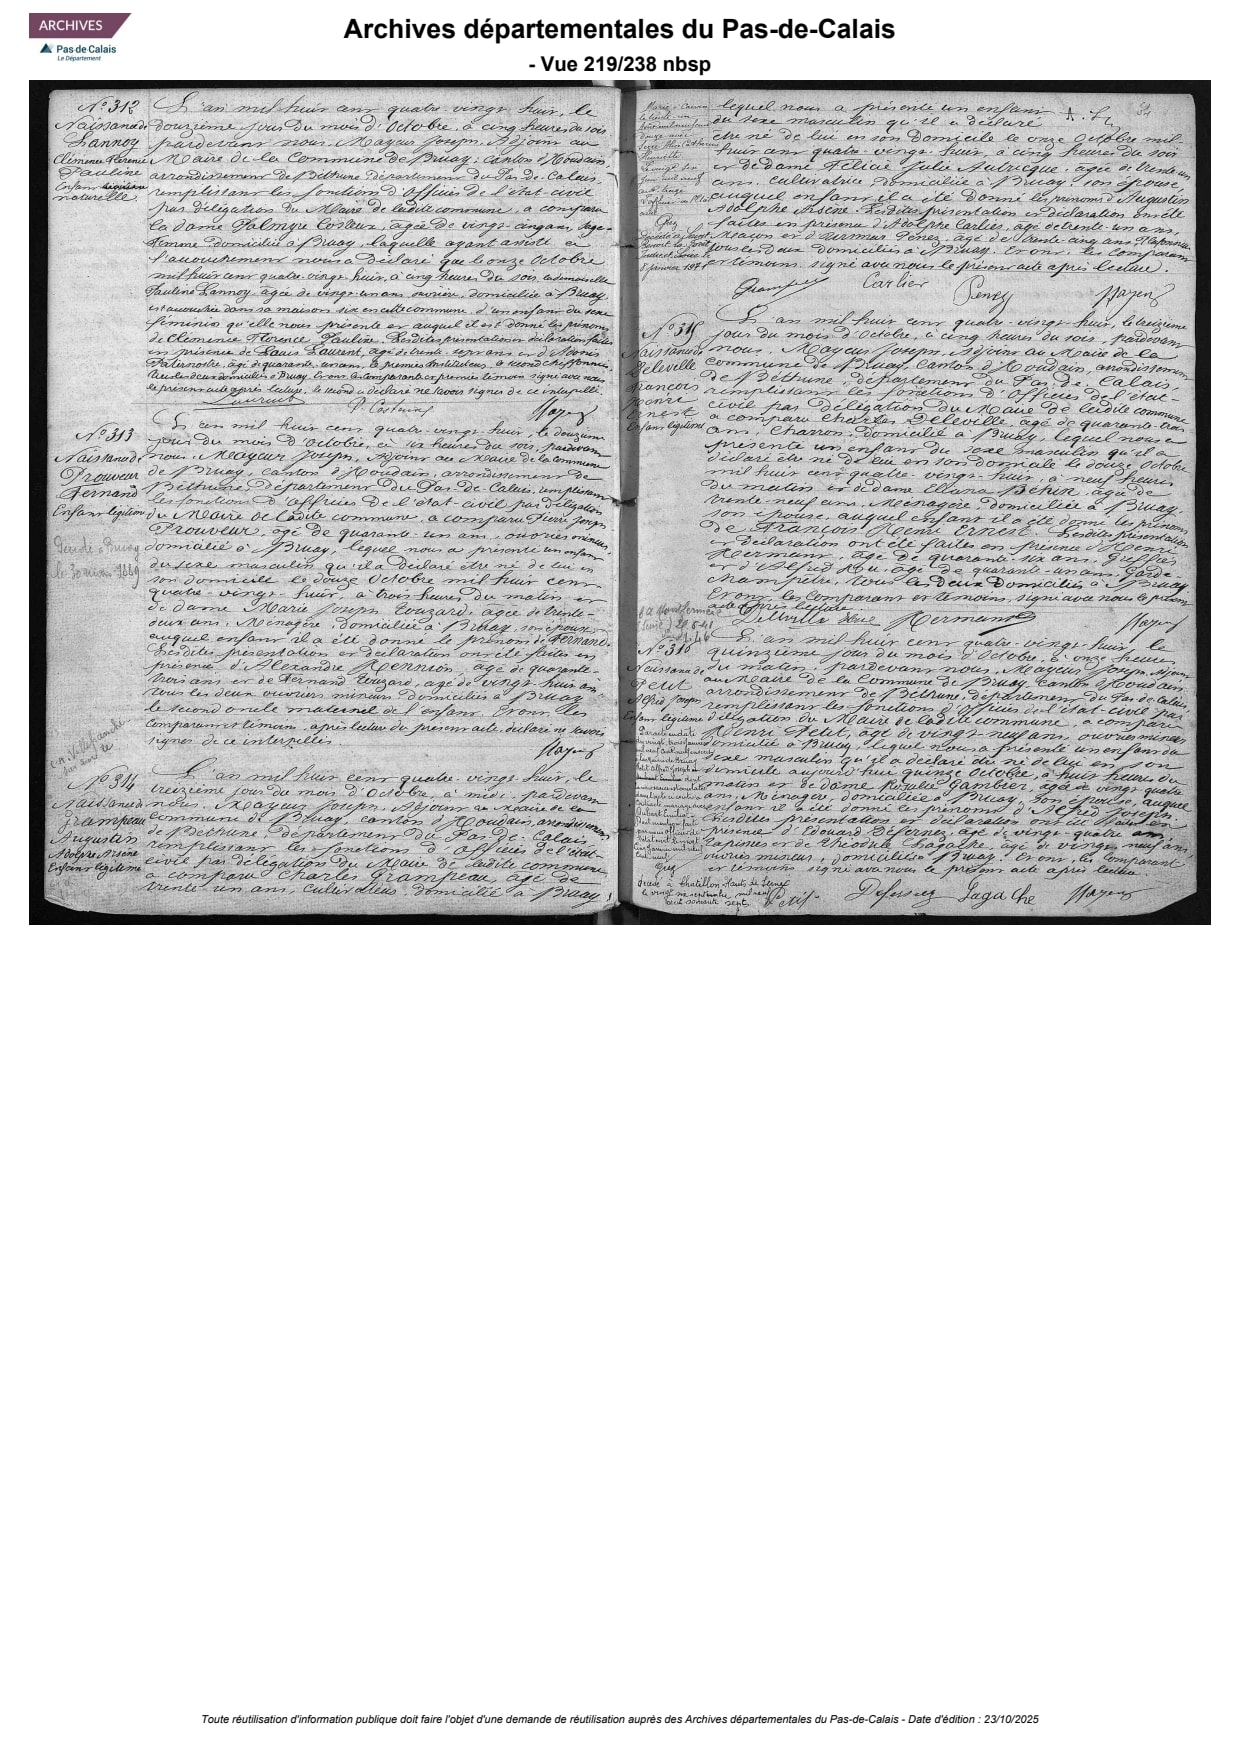 ARCHIVES
Pas-de-Calais
Le Département
Archives départementales du Pas-de-Calais
- Vue 219/238 nbsp
N° 312
Naissance de
Lannoy
Clémence Florence
Pauline
Enfant
naturelle
L'an mil huit cent quatre-vingt huit, le
douzième jour du mois d'Octobre, à cinq heures du soir
pardevant nous, Mayeur Joseph, Adjoint au
Maire de la Commune de Bruay, canton d'Houdain,
arrondissement de Béthune, département du Pas-de-Calais,
remplissant les fonctions d'officier de l'état-civil
par délégation du Maire de ladite commune, a comparu
la dame Palmyre Costeur, âgée de vingt-cinq ans, Sage-
femme domiciliée à Bruay, laquelle ayant assisté à
l'accouchement nous a déclaré que le onze Octobre
mil huit cent quatre-vingt-huit, à cinq heures du soir, mademoiselle
Pauline Lannoy, âgée de vingt-un ans, ouvrière, domiciliée à Bruay
est accouchée dans sa maison sise en cette commune, d'un enfant du sexe
féminin qu'elle nous présente et auquel il est donné les prénoms
de Clémence Florence Pauline. Lesdites présentation et déclaration faites
en présence de Louis Laurent, âgé de trente-sept ans et d'Adonis
Paternostre, âgé de quarante ans, le premier Instituteur, le second chiffonnier,
tous les deux domiciliés à Bruay. Et ont la comparante et premier témoin signé avec nous
le présent acte après lecture, le second a déclaré ne savoir signer de ce interpellé.
Laurent P. Costeur Mayeur
N° 313
Naissance de
Prouveur
Fernand
Enfant légitime
Décédé à Bruay
le 30 1889
L'an mil huit cent quatre-vingt huit, le douzième
jour du mois d'Octobre, à six heures du soir, pardevant
nous, Mayeur Joseph, Adjoint au Maire de la commune
de Bruay, canton d'Houdain, arrondissement de
Béthune, département du Pas-de-Calais, remplissant
les fonctions d'officier de l'état-civil par délégation
du Maire de ladite commune, a comparu Pierre Joseph
Prouveur, âgé de quarante-un ans, ouvrier mineur,
domicilié à Bruay, lequel nous a présenté un enfant
du sexe masculin qu'il a déclaré être né de lui en
son domicile le douze Octobre mil huit cent
quatre-vingt-huit, à trois heures du matin et
de dame Marie Joseph Touzard, âgée de trente-
deux ans, Ménagère, domiciliée à Bruay, son épouse,
auquel enfant il a été donné le prénom de Fernand.
Lesdites présentation et déclaration ont été faites en
présence d'Alexandre Hennion, âgé de quarante-
trois ans et de Fernand Touzard, âgé de vingt-huit ans,
tous les deux ouvriers mineurs domiciliés à Bruay
le second oncle maternel de l'enfant. Et ont les
comparant et témoins, après lecture du présent acte, déclaré ne savoir
signer de ce interpellés.
Mayeur
N° 314
Naissance de
Grampeau
Augustin
Adolphe Arsène
Enfant légitime
L'an mil huit cent quatre-vingt-huit, le
treizième jour du mois d'Octobre, à midi, pardevant
nous, Mayeur Joseph, Adjoint au Maire de la
commune de Bruay, canton d'Houdain, arrondissement
de Béthune, département du Pas-de-Calais
remplissant les fonctions d'officier de l'état-
civil par délégation du Maire de ladite commune
a comparu Charles Grampeau, âgé de
trente un ans, cultivateur domicilié à Bruay,
lequel nous a présenté un enfant
du sexe masculin qu'il a déclaré
être né de lui en son domicile le onze Octobre mil
huit cent quatre-vingt-huit, à cinq heures du soir
et de dame Félicie Julie Aubrique, âgée de trente un
ans, cultivatrice domiciliée à Bruay, son épouse,
auquel enfant il a été donné les prénoms d'Augustin
Adolphe Arsène. Lesdites présentation et déclaration ont été
faites en présence d'Adolphe Carlier, âgé de trente-un ans,
Maçon et d'Penez, âgé de trente-cinq ans,
tous les deux domiciliés à Bruay. Et ont les comparant
et témoins signé avec nous le présent acte après lecture.
Carlier Penez Mayeur
N° 315
Naissance de
Deleville
François
Henri
Ernest
Enfant légitime
L'an mil huit cent quatre-vingt-huit, le treizième
jour du mois d'Octobre, à cinq heures du soir, pardevant
nous, Mayeur Joseph, Adjoint au Maire de la
Commune de Bruay, Canton d'Houdain, arrondissement
de Béthune, département du Pas-de-Calais
remplissant les fonctions d'officier de l'état-
civil par délégation du Maire de ladite commune
a comparu Charles Deleville, âgé de quarante-trois
ans, Charron, domicilié à Bruay, lequel nous a
présenté un enfant du sexe masculin qu'il a
déclaré être né de lui en son domicile le douze Octobre
mil huit cent quatre-vingt-huit, à neuf heures
du matin et de dame Béhin, âgée de
trente-neuf ans, Ménagère, domiciliée à Bruay,
son épouse, auquel enfant il a été donné les prénoms
de François Henri Ernest. Lesdites présentation
et déclaration ont été faites en présence d'Henri
Hermant, âgé de quarante-six ans, Greffier,
et d'Alfred, âgé de quarante-un ans, Garde
champêtre, tous les deux domiciliés à Bruay
Et ont les comparant et témoins, signé avec nous le présent
acte après lecture.
Hermant Mayeur
N° 316
Naissance de
Petit
Alfred Joseph
Enfant légitime
L'an mil huit cent quatre-vingt-huit, le
quinzième jour du mois d'Octobre, à onze heures
du matin, pardevant nous, Mayeur Joseph, Adjoint
au Maire de la Commune de Bruay, canton d'Houdain
arrondissement de Béthune, département du Pas-de-Calais,
remplissant les fonctions d'officier de l'état-civil par
délégation du Maire de ladite commune, a comparu
Henri Petit, âgé de vingt-neuf ans, ouvrier mineur
domicilié à Bruay, lequel nous a présenté un enfant du
sexe masculin qu'il a déclaré être né de lui en son
domicile aujourd'hui quinze Octobre, à huit heures du
matin et de dame Rosalie Gambier, âgée de vingt-quatre
ans, Ménagère, domiciliée à Bruay, son épouse, auquel
enfant il a été donné les prénoms d'Alfred Joseph.
Lesdites présentation et déclaration ont été faites en
présence d'Edouard Défernez, âgé de vingt-quatre ans,
et de Théodule Lagache, âgé de vingt-neuf ans,
ouvriers mineurs, domiciliés à Bruay. Et ont, les comparant
et témoins signé avec nous le présent acte après lecture.
Décédé à Chatillon Hauts de Seine
Petit Défernez Lagache Mayeur
Toute réutilisation d'information publique doit faire l'objet d'une demande de réutilisation auprès des Archives départementales du Pas-de-Calais - Date d'édition : 23/10/2025